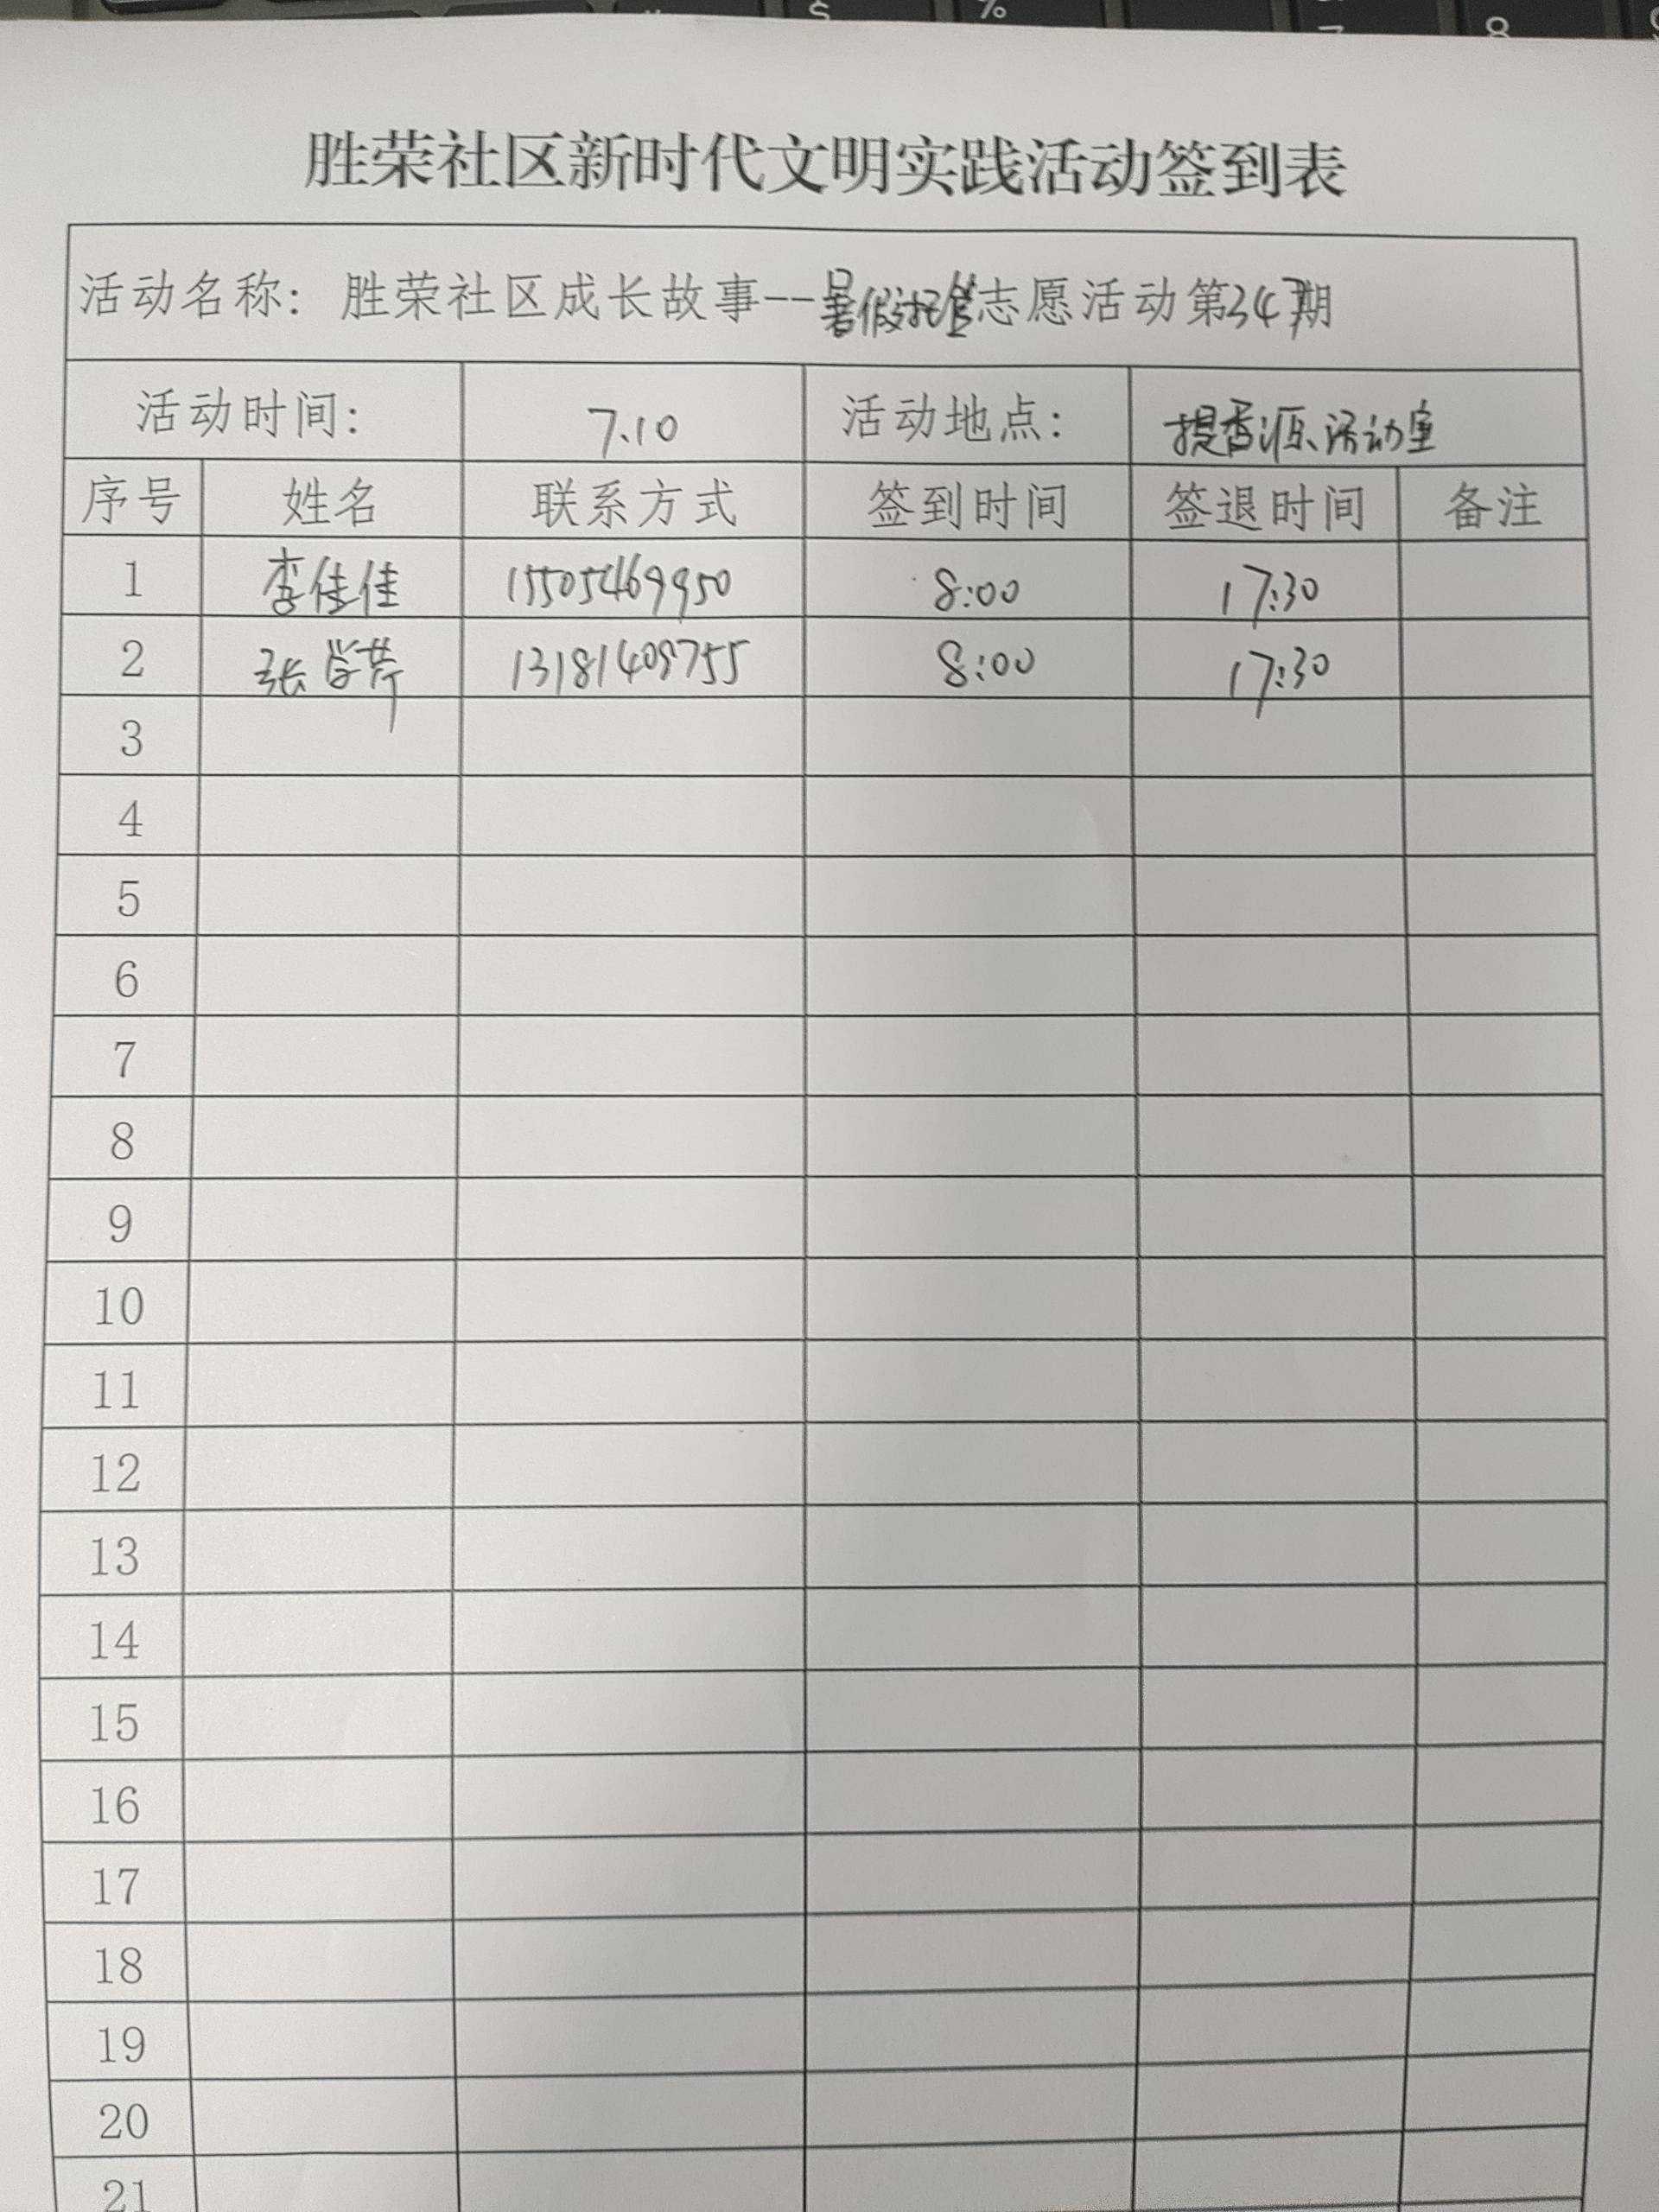 胜荣社区新时代文明实践活动签到表
活动名称：胜荣社区成长故事--暑假托管志愿活动第347期
活动时间： 7.10 活动地点： 提香源活动室
序号 姓名 联系方式 签到时间 签退时间 备注
1 李佳佳 15505469950 8:00 17:30
2 张学芹 13181409755 8:00 17:30
3
4
5
6
7
8
9
10
11
12
13
14
15
16
17
18
19
20
21